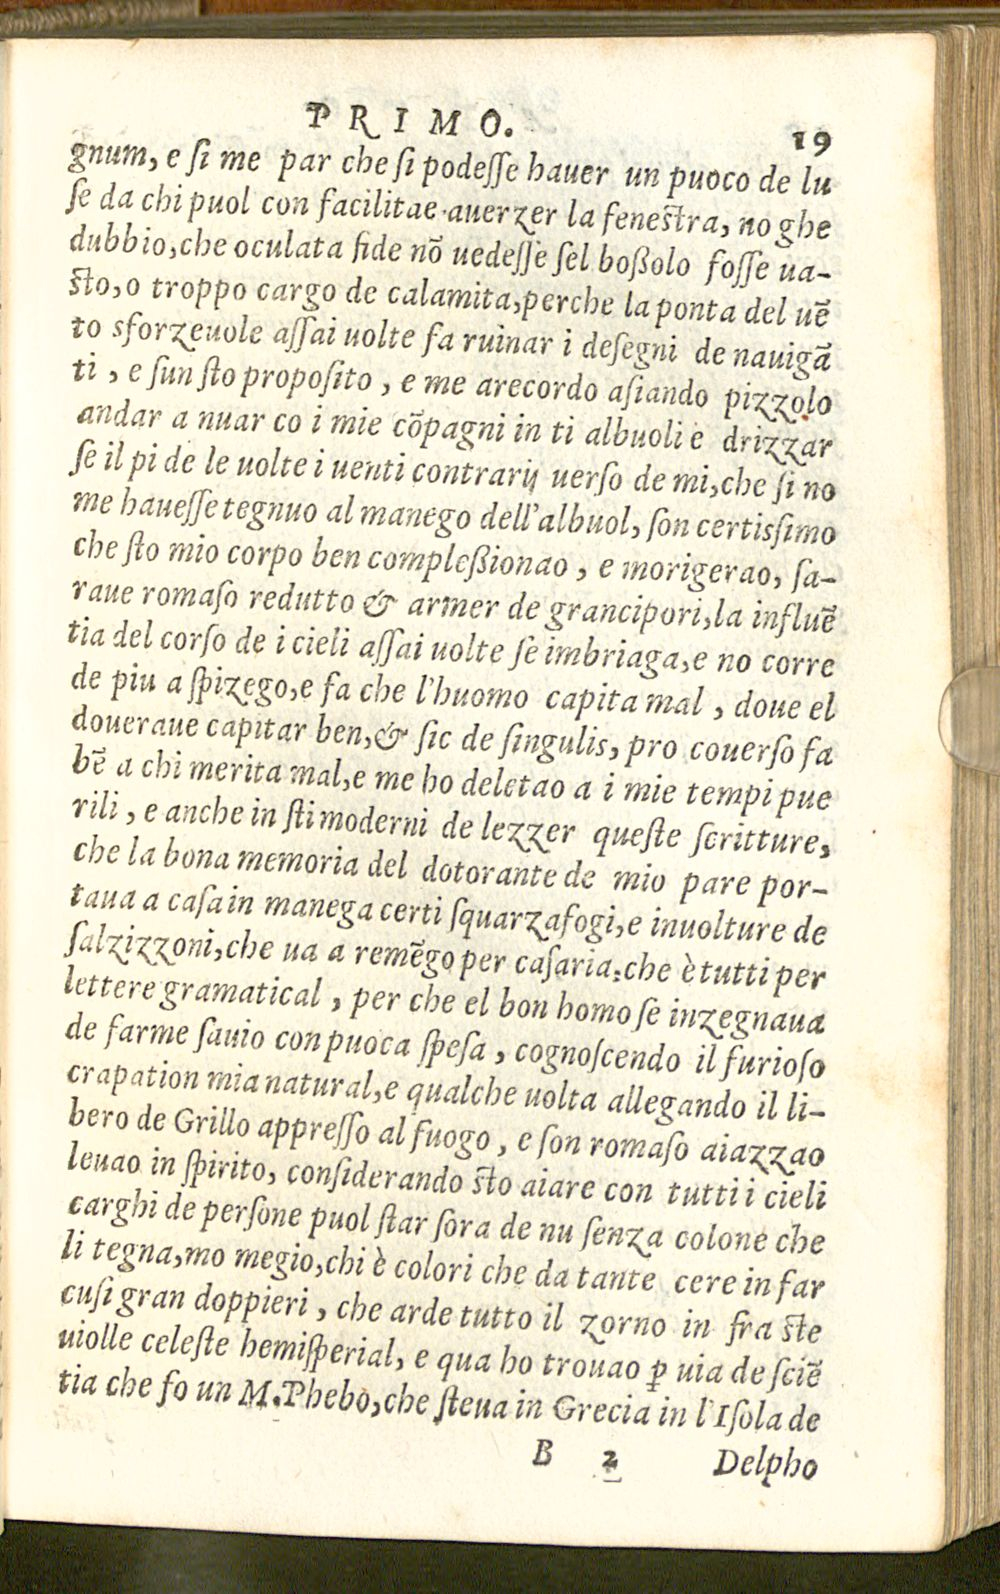 PRIMO.
19
gnum, e ſi me par che ſi podeſſe hauer un puoco de lu
ſe da chi puol con facilitae auerzer la feneſtra, no ghe
dubbio, che oculata fide nō uedeſſe ſel boßolo foſſe ua-
ſto, o troppo cargo de calamita, perche la ponta del uē
to sforzeuole aſſai uolte fa ruinar i deſegni de nauigā
ti, e ſun ſto propoſito, e me arecordo aſiando pizzolo
andar a nuar co i mie cōpagni in ti albuoli e drizzar
ſe il pi de le uolte i uenti contrarij uerſo de mi, che ſi no
me haueſſe tegnuo al manego dell'albuol, ſon certiſsimo
che ſto mio corpo ben compleßionao, e morigerao, ſa-
raue romaſo redutto & armer de grancipori, la influē
tia del corſo de i cieli aſſai uolte ſe imbriaga, e no corre
de piu a ſpizego, e fa che l'huomo capita mal, doue el
doueraue capitar ben, & ſic de ſingulis, pro couerſo fa
bē a chi merita mal, e me ho deletao a i mie tempi pue
rili, e anche in ſti moderni de lezzer queſte ſcritture,
che la bona memoria del dotorante de mio pare por-
taua a caſa in manega certi ſquarzafogi, e inuolture de
ſalzizzoni, che ua a remēgo per caſaria, che è tutti per
lettere gramatical, per che el bon homo ſe inzegnaua
de farme ſauio con puoca ſpeſa, cognoſcendo il furioſo
crapation mia natural, e qualche uolta allegando il li-
bero de Grillo appreſſo al fuogo, e ſon romaſo aiazzao
leuao in ſpirito, conſiderando ſto aiare con tutti i cieli
carghi de perſone puol ſtar ſora de nu ſenza colone che
li tegna, mo megio, chi è colori che da tante cere in far
cuſi gran doppieri, che arde tutto il zorno in fra ſte
uiolle celeſte hemiſperial, e qua ho trouao ꝑ uia de ſciē
tia che fo un M. Phebo, che ſteua in Grecia in l'Iſola de
B 2 Delpho